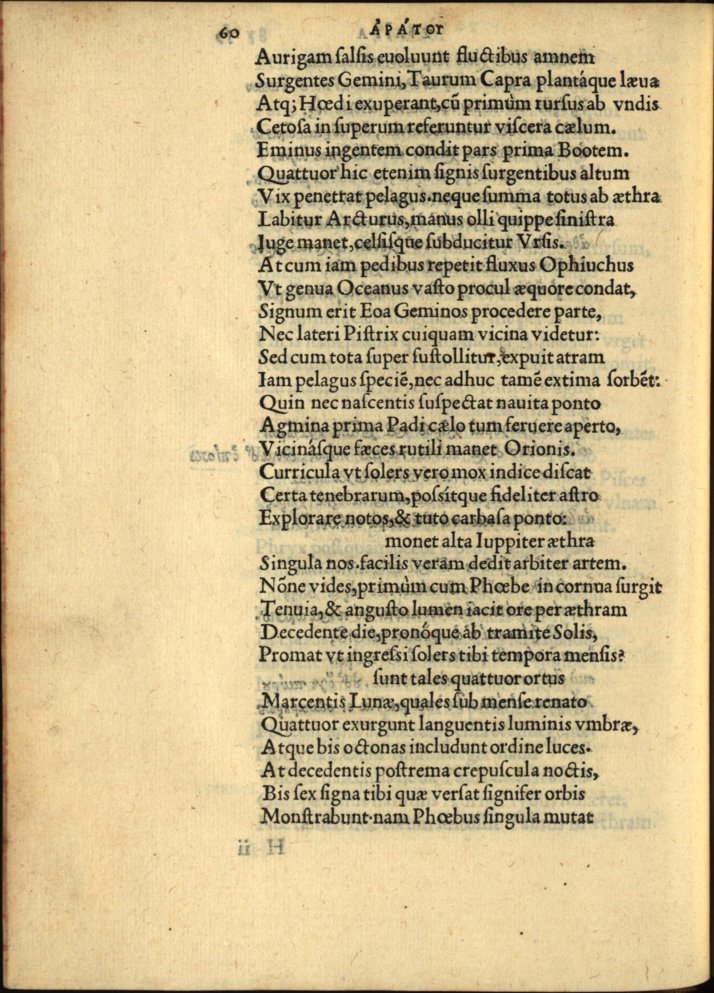 60 ἈΡΆΤΟΥ
Aurigam ſalſis euoluunt fluctibus amnem
Surgentes Gemini, Taurum Capra plantáque læua
Atq; Hœdi exuperant, cū primùm rurſus ab vndis
Cetoſa in ſuperum referuntur viſcera cælum.
Eminus ingentem condit pars prima Bootem.
Quattuor hic etenim ſignis ſurgentibus altum
Vix penetrat pelagus. neque ſumma totus ab æthra
Labitur Arcturus, manus olli quippe ſiniſtra
Iuge manet, celſiſque ſubducitur Vrſis.
At cum iam pedibus repetit fluxus Ophiuchus
Vt genua Oceanus vaſto procul æquore condat,
Signum erit Eoa Geminos procedere parte,
Nec lateri Piſtrix cuiquam vicina videtur:
Sed cum tota ſuper ſuſtollitur, expuit atram
Iam pelagus ſpeciē, nec adhuc tamē extima ſorbēt:
Quin nec naſcentis ſuſpectat nauita ponto
Agmina prima Padi cælo tum feruere aperto,
Vicináſque fæces rutili manet Orionis.
Curricula vt ſolers vero mox indice diſcat
Certa tenebrarum, poſsítque fideliter aſtro
Explorare notos, & tuto carbaſa ponto:
monet alta Iuppiter æthra
Singula nos. facilis veram dedit arbiter artem.
Nōne vides, primùm cum Phœbe in cornua ſurgit
Tenuia, & anguſto lumen iacit ore per æthram
Decedente die, pronóque ab tramite Solis,
Promat vt ingreſsi ſolers tibi tempora menſis?
ſunt tales quattuor ortus
Marcentis Lunæ, quales ſub menſe renato
Quattuor exurgunt languentis luminis vmbræ,
Atque bis octonas includunt ordine luces.
At decedentis poſtrema crepuſcula noctis,
Bis ſex ſigna tibi quæ verſat ſignifer orbis
Monſtrabunt. nam Phœbus ſingula mutat